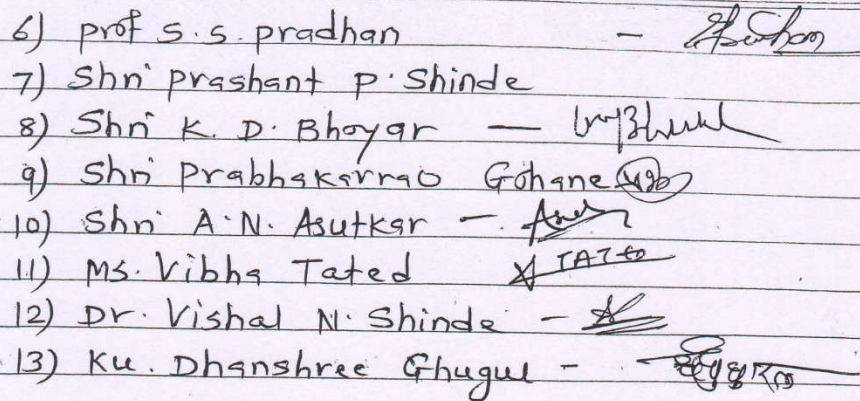 6) prof s.s. pradhan -
7) Shri prashant p. Shinde
8) Shri K. D. Bhoyar -
9) Shri Prabhakarrao Gohane
10) Shri A.N. Asutkar -
11) Ms. Vibha Tated
12) Dr. Vishal N. Shinde -
13) Ku. Dhanshree Ghugul -